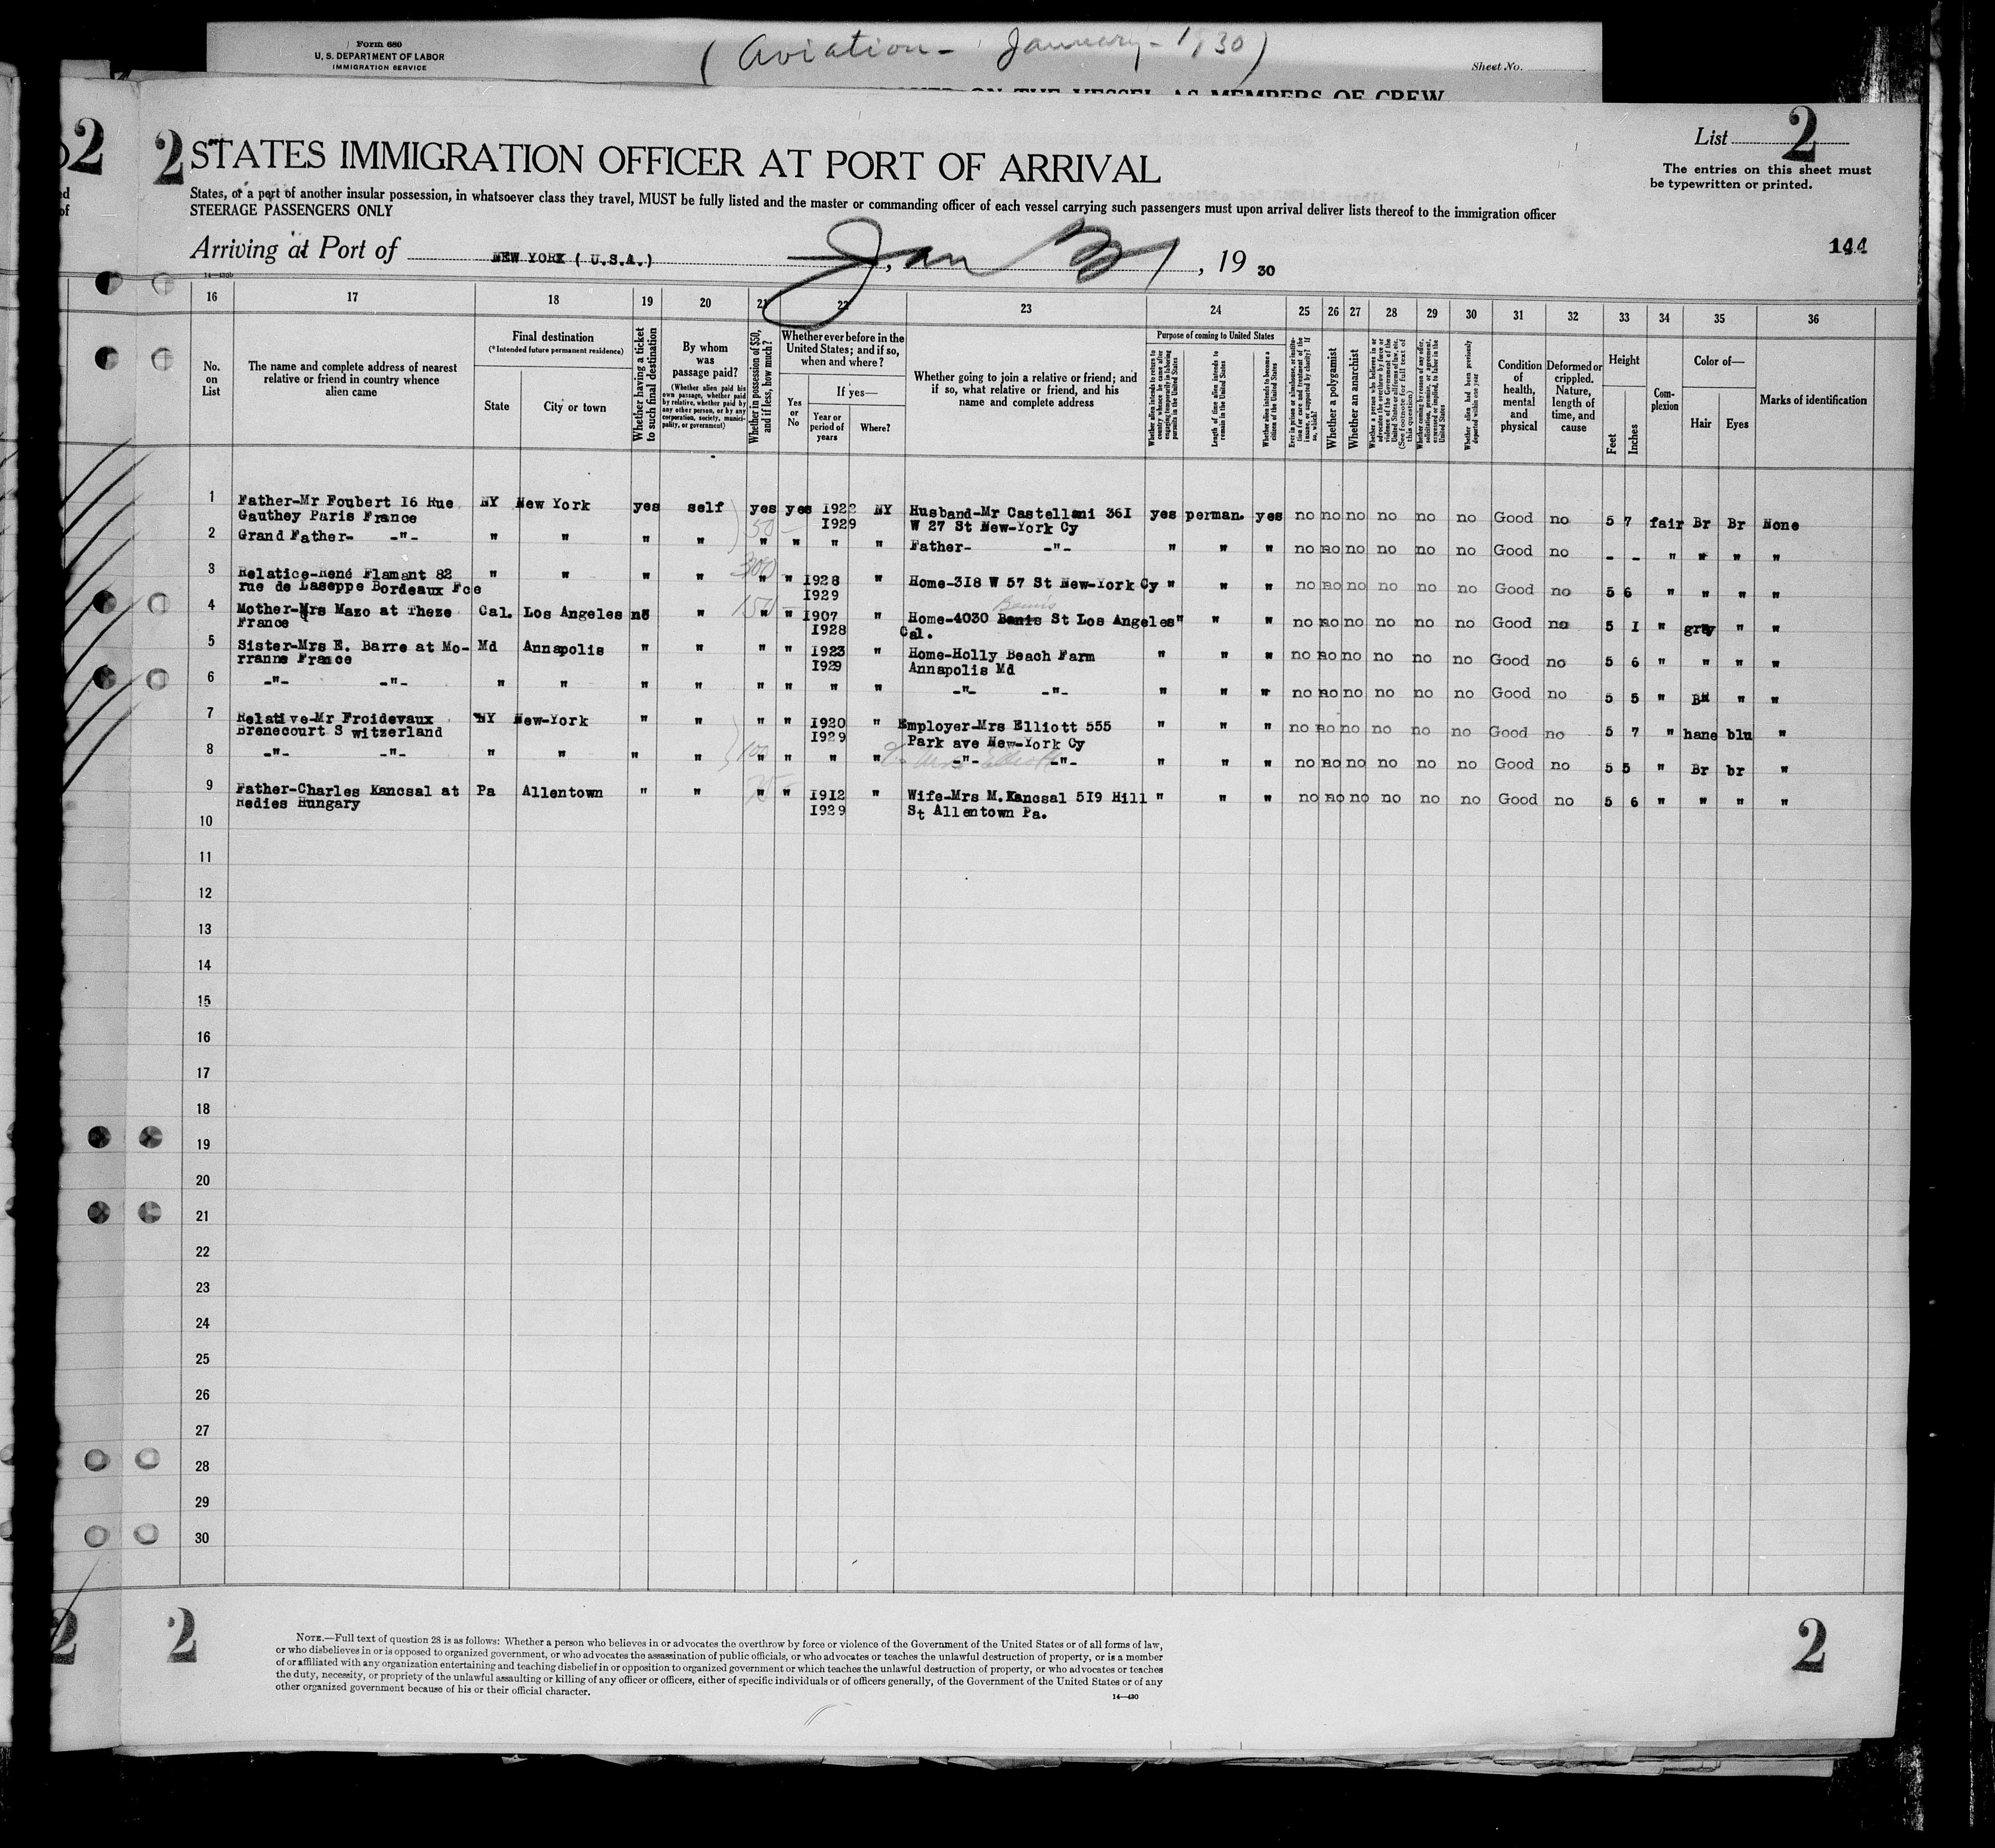 Form 680
U. S. DEPARTMENT OF LABOR
IMMIGRATION SERVICE
(Aviation - January - 1930)
Sheet No.
ON THE VESSEL AS MEMBERS OF CREW
2 2 STATES IMMIGRATION OFFICER AT PORT OF ARRIVAL
List 2
The entries on this sheet must
be typewritten or printed.
States, or a port of another insular possession, in whatsoever class they travel, MUST be fully listed and the master or commanding officer of each vessel carrying such passengers must upon arrival deliver lists thereof to the immigration officer
STEERAGE PASSENGERS ONLY
Arriving at Port of NEW YORK ( U.S.A.) Jan 31, 19 30
144
14—430b
16 17 18 19 20 21 22 23 24 25 26 27 28 29 30 31 32 33 34 35 36
No. on List
The name and complete address of nearest relative or friend in country whence alien came
Final destination
(*Intended future permanent residence)
State
City or town
Whether having a ticket to such final destination
By whom was passage paid?
(Whether alien paid his own passage, whether paid by relative, whether paid by any other person, or by any corporation, society, municipality, or government)
Whether in possession of $50, and if less, how much?
Whether ever before in the United States; and if so, when and where?
Yes or No
If yes—
Year or period of years
Where?
Whether going to join a relative or friend; and if so, what relative or friend, and his name and complete address
Purpose of coming to United States
Whether alien intends to return to country whence he came after engaging temporarily in laboring pursuits in the United States
Length of time alien intends to remain in the United States
Whether alien intends to become a citizen of the United States
Ever in prison or almshouse or institution for care and treatment of the insane, or supported by charity? If so, which?
Whether a polygamist
Whether an anarchist
Whether a person who believes in or advocates the overthrow by force or violence of the Government of the United States or all forms of law, etc. (See footnote for full text of this question)
Whether coming by reason of any offer, solicitation, promise, or agreement, expressed or implied, to labor in the United States
Whether alien had been previously deported within one year
Condition of health, mental and physical
Deformed or crippled. Nature, length of time, and cause
Height
Feet
Inches
Complexion
Color of—
Hair
Eyes
Marks of identification
1 Father-Mr Foubert I6 Rue NY New York yes self yes yes I922 NY Husband-Mr Castellani 36I yes perman. yes no no no no no no Good no 5 7 fair Br Br None
Gauthey Paris France 50 I929 W 27 St New-York Cy
2 Grand Father- -"- " " " " " " " " Father- -"- " " " no no no no no no Good no - - " " " "
3 Relatice-René Flamant 82 " " " " 300 " " I928 " Home-3I8 W 57 St New-York Cy " " " no no no no no no Good no 5 6 " " " "
rue de Laseppe Bordeaux Fce I929
4 Mother-Mrs Mazo at Theze Cal. Los Angeles no " 150 " " I907 " Home-4030 Benis St Los Angeles " " " no no no no no no Good no 5 I " gray " "
France I928 Cal.
Bemis
5 Sister-Mrs E. Barre at Mo- Md Annapolis " " " " I923 " Home-Holly Beach Farm " " " no no no no no no Good no 5 6 " " " "
rranne France I929 Annapolis Md
6 -"- -"- " " " " " " " " -"- -"- " " " no no no no no no Good no 5 5 " Br " "
7 Relative-Mr Froidevaux NY New-York " " " " I920 " Employer-Mrs Elliott 555 " " " no no no no no no Good no 5 7 " hane blu "
Brenecourt S witzerland I929 Park ave New-York Cy
8 -"- -"- " " " " 100 " " " " -"- -"- " " " no no no no no no Good no 5 5 " Br br "
9 Father-Charles Kancsal at Pa Allentown " " " " I9I2 " Wife-Mrs M.Kancsal 5I9 Hill " " " no no no no no no Good no 5 6 " " " "
Hedies Hungary I929 St Allentown Pa.
10
11
12
13
14
15
16
17
18
19
20
21
22
23
24
25
26
27
28
29
30
2 2
NOTE.—Full text of question 28 is as follows: Whether a person who believes in or advocates the overthrow by force or violence of the Government of the United States or of all forms of law,
or who disbelieves in or is opposed to organized government, or who advocates the assassination of public officials, or who advocates or teaches the unlawful destruction of property, or is a member
of or affiliated with any organization entertaining and teaching disbelief in or opposition to organized government or which teaches the unlawful destruction of property, or who advocates or teaches
the duty, necessity, or propriety of the unlawful assaulting or killing of any officer or officers, either of specific individuals or of officers generally, of the Government of the United States or of any
other organized government because of his or their official character.
14—430
2